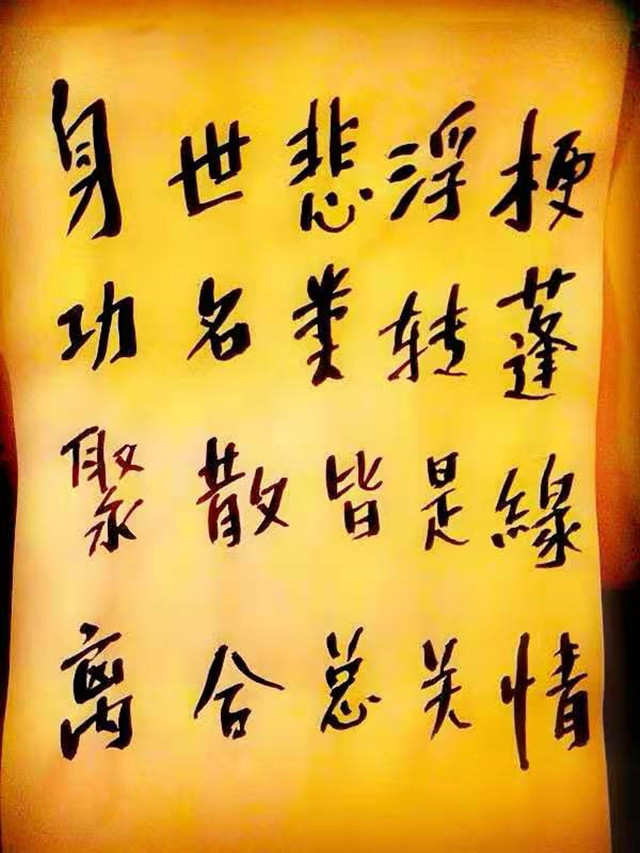 身世悲浮梗
功名类转蓬
聚散皆是緣
离合总关情